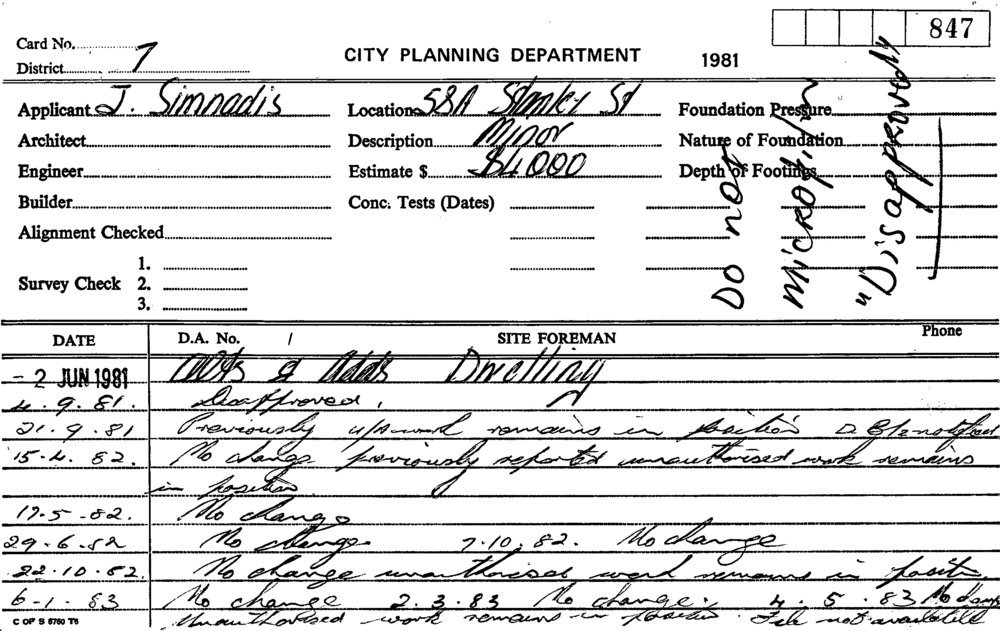 847
Card No. 7
District
CITY PLANNING DEPARTMENT 1981
Applicant J. Simnadis Location 58A Stanley St Foundation Pressure
Architect Description Minor Nature of Foundation
Engineer Estimate $ $4000 Depth of Footings
Builder Conc. Tests (Dates)
Alignment Checked
Survey Check 1.
2.
3.
Do not
Microfilm
"Disapproved"
DATE D.A. No. / SITE FOREMAN Phone
- 2 JUN 1981 Alts & Adds Dwelling
4.9.81. Disapproved.
21.9.81 Previously work remains in position notified
15-4.82. No change previously reported unauthorised work remains
in position.
17.5-82. No change
29.6.82 No change 7.10.82. No change
22-10.82. No change unauthorised work remains in
6-1.83 No change 2.3.83 No change. 4.5.83 No
Unauthorised work remains in position. File not available
C OF S 5760 T6